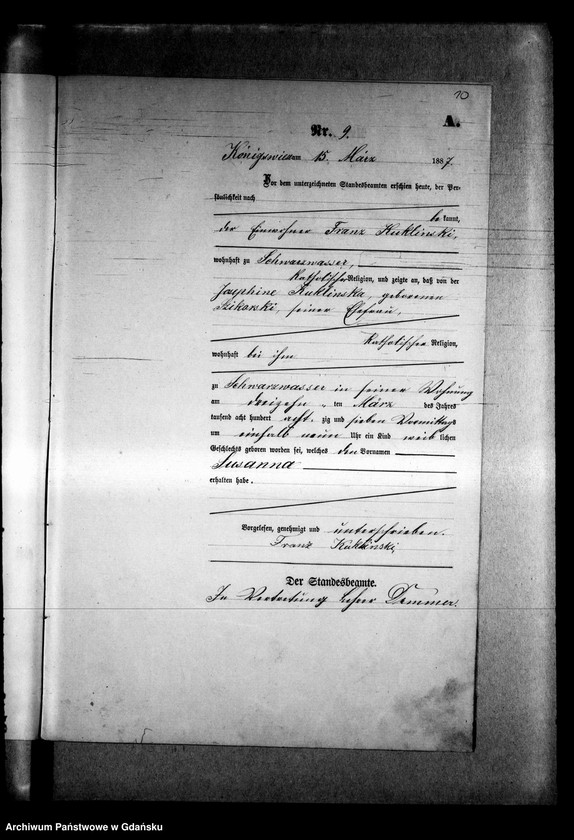 10
A.
Nr. 9.
Königswiese am 15. März 1887.
Vor dem unterzeichneten Standesbeamten erschien heute, der Per-
sönlichkeit nach
be kannt,
der Einwohner Franz Kuklinski,
wohnhaft zu Schwarzwasser,
katholischer Religion, und zeigte an, daß von der
Josephine Kuklinska, geborenen
Sikorski, seiner Ehefrau,
katholischer Religion,
wohnhaft bei ihm
zu Schwarzwasser in seiner Wohnung
am dreizehn ten März des Jahres
tausend acht hundert acht zig und sieben Vormittags
um einhalb neun Uhr ein Kind weib lichen
Geschlechts geboren worden sei, welches den Vornamen
Susanna
erhalten habe.
Vorgelesen, genehmigt und unterschrieben.
Franz Kuklinski
Der Standesbeamte.
In Vertretung Demmer.
Archiwum Państwowe w Gdańsku